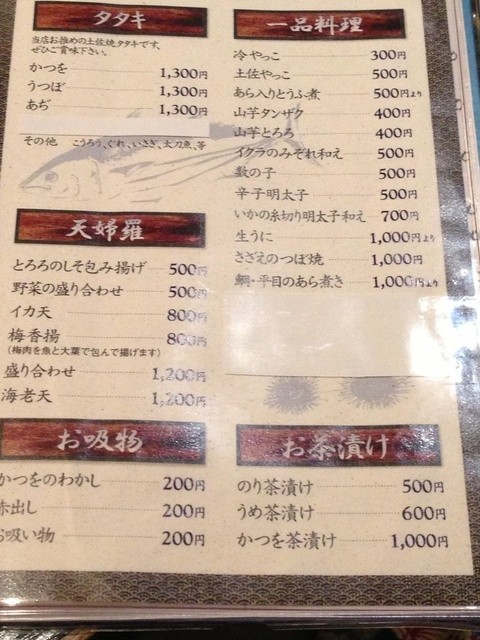 タタキ
当店お推めの土佐焼タタキです。
ぜひご賞味下さい。
かつを 1,300円
うつぼ 1,300円
あぢ 1,300円
その他 こうろう、ぐれ、いさぎ、太刀魚、等
天婦羅
とろろのしそ包み揚げ 500円
野菜の盛り合わせ 500円
イカ天 800円
梅香揚 800円
(梅肉を魚と大葉で包んで揚げます)
盛り合わせ 1,200円
海老天 1,200円
お吸物
かつをのわかし 200円
赤出し 200円
お吸い物 200円
一品料理
冷やっこ 300円
土佐やっこ 500円
あら入りとうふ煮 500円より
山芋タンザク 400円
山芋とろろ 400円
イクラのみぞれ和え 500円
数の子 500円
辛子明太子 500円
いかの糸切り明太子和え 700円
生うに 1,000円より
さざえのつぼ焼 1,000円
鯛・平目のあら煮き 1,000円より
お茶漬け
のり茶漬け 500円
うめ茶漬け 600円
かつを茶漬け 1,000円